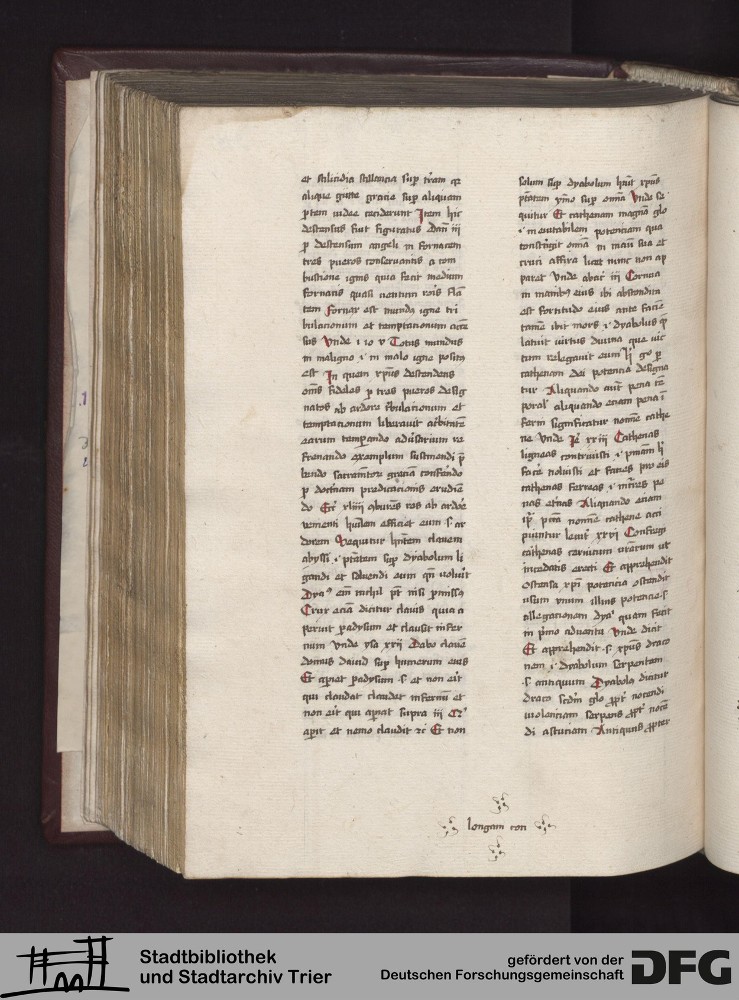 et stilicidia stillancia sup terram qr
alique gutte gracie sup aliquam
ptem iudee ceciderunt Item hic
descensus fuit figuratus Dan iii
p descensum angeli in fornacem
tres pueros conservantis a com
bustione ignis quia fecit medium
fornacis quasi ventum roris flan
tem fornax est mundus igne tri
bulacionum et temptacionum
sus Vnde i io v Totus mundus
in maligno i in malo igne positus
est In quem xpus descendens
omes fideles p tres pueros desig
natos ab ardore tbulacionum et
temptacionum liberavit
earum temperando re
frenando exemplum sustinendi p
bendo sacramentorum graciam conferendo
p doctinam predicacionis erudien
do Ecc xliii ros ab ardore
venienti humilem efficiet eum s ar
dorem Sequitur hntem clavem
abyssi i ptatem sup dyabolum li
gandi et solvendi eum qn voluit
Dya eni nichil pt nisi pmissus
Crux eciam dicitur clavis quia a
peruit padysum et clausit infer
num Vnde ysa xxii Dabo clave
domus david sup humerum eius
Et aperiet padysum s et non erit
qui claudat claudet infernum et
non erit qui aperiat supra iii
aperit et nemo claudit zc Et non
solum sup dyabolum huit xpus
ptatem ymo sup omnia Vnde se
quitur Et cathenam magnam glo
i in eutabilem potenciam qua
constringit omnia in manu sua et
cruci affixa licet nunc non ap
paret Vnde abac iii Cornua
in manibus eius ibi abscondita
est fortitudo eius ante faciem
tamen ibit mors i dyabolus q
latuit virtus divina que vic
tum relegavit eum li glo p
cathenam dei potencia designa
tur Aliquando aut pena tem
poral aliquando eciam pena i
fern significatur nomine cathe
ne Vnde Je xxviii Cathenas
ligneas contrivisti i pniam li
facere noluisti et facies pro eis
cathenas ferreas i infires pe
nas eternas Aliquando eciam
ipa pcca nomine cathene acci
piuntur levit xxvi Confregi
cathenas cervicum vrarum ut
incedatis erecti Et apprehendit
Ostensa xpi potencia ostendit
usum vnum illius potencie s
alligacionem dya quam fecit
in pimo adventu Vnde dicit
Et apprehendit s xpus draco
nem i dyabolum serpentem
s antiquum Dyabolus dicitur
draco scdm glo ppt nocendi
violenciam serpens ppt nocen
di astuciam Antiquus ppter
longam con
Stadtbibliothek
und Stadtarchiv Trier
gefördert von der
Deutschen Forschungsgemeinschaft
DFG